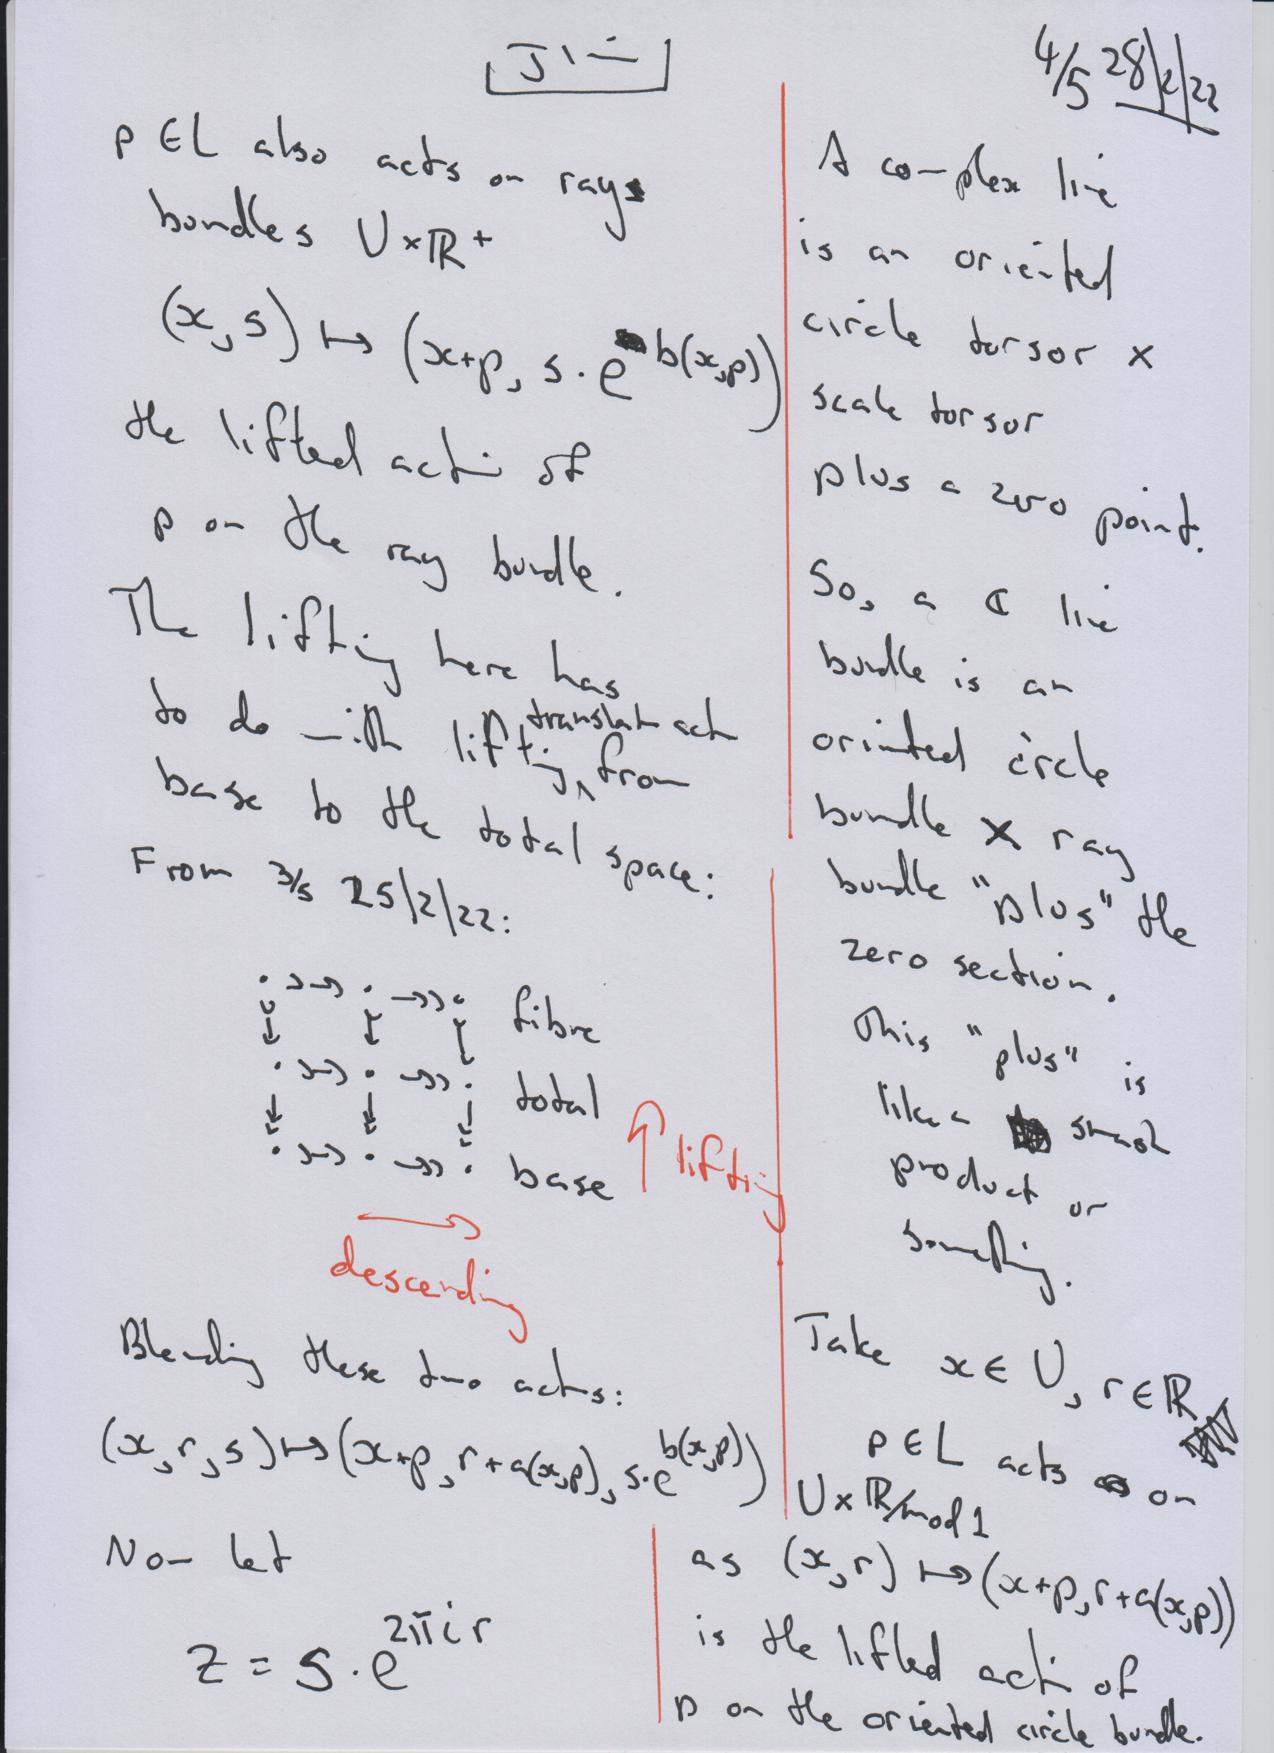 4/5 28/2/22
p ∈ L also acts on rays
bundles U × ℝ⁺
(x, s) ↦ (x+p, s · e^{b(x,p)})
the lifted actn of
p on the ray bundle.
The lifting here has
to do with lifting translatn actn from
base to the total space:
From 3/5 25/2/22:
· >-> · ->> · fibre
· >-> · ->> · total
· >-> · ->> · base
↑ lifting
descending
Blending these two actns:
(x, r, s) ↦ (x+p, r+a(x,p), s·e^{b(x,p)})
Now let
z = s · e^{2πir}
A complex line
is an oriented
circle torsor ×
scale torsor
plus a zero point.
So, a ℂ line
bundle is an
oriented circle
bundle × ray
bundle "plus" the
zero section.
This "plus" is
like a smash
product or
something.
Take x ∈ U, r ∈ ℝ
p ∈ L acts on
U × ℝ/mod 1
as (x, r) ↦ (x+p, r+a(x,p))
is the lifted actn of
p on the oriented circle bundle.